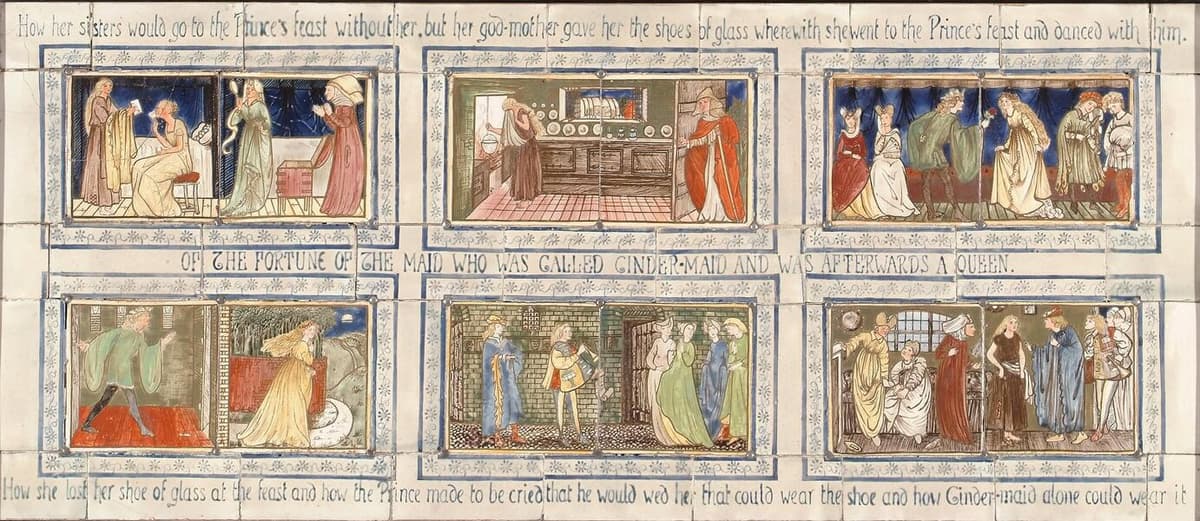 How her sisters would go to the Prince's feast without her, but her god-mother gave her the shoes of glass wherewith she went to the Prince's feast and danced with him.
OF THE FORTUNE OF THE MAID WHO WAS CALLED CINDER-MAID AND WAS AFTERWARDS A QUEEN.
How she lost her shoe of glass at the feast and how the Prince made to be cried that he would wed her that could wear the shoe and how Cinder-maid alone could wear it